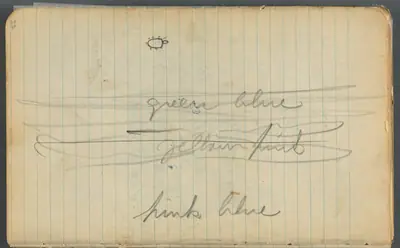 green blue
yellow pink
pink blue